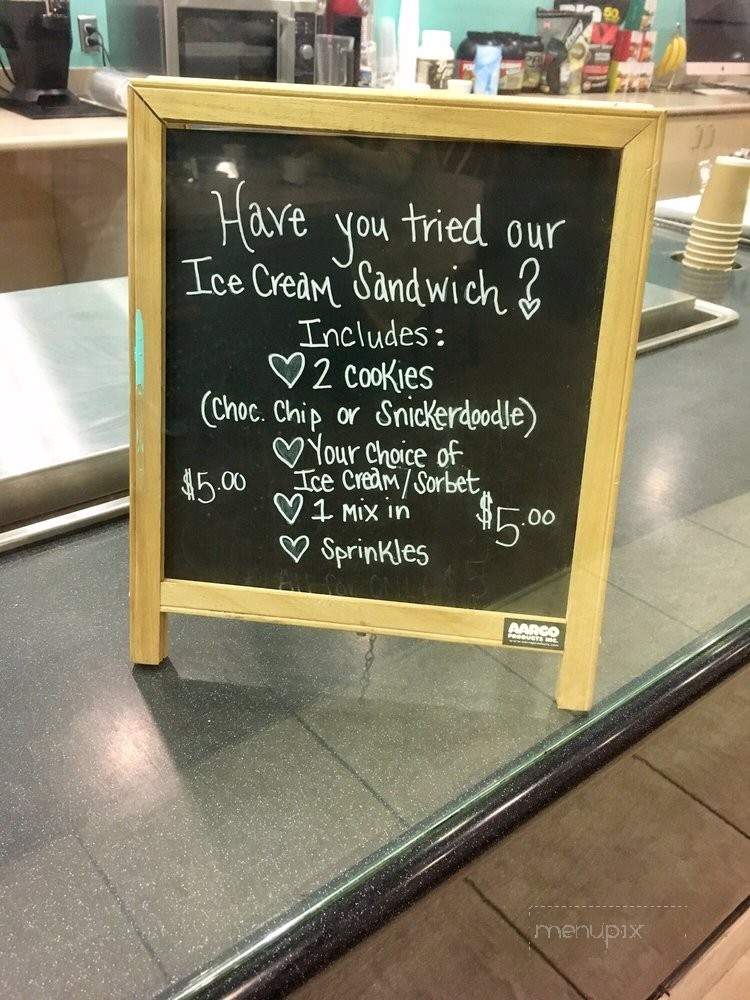 Have you tried our
Ice Cream Sandwich?
Includes:
2 cookies
(Choc. Chip or Snickerdoodle)
Your Choice of
Ice Cream/Sorbet
$5.00
1 Mix in
$5.00
Sprinkles
AARCO
PRODUCTS INC.
menupix